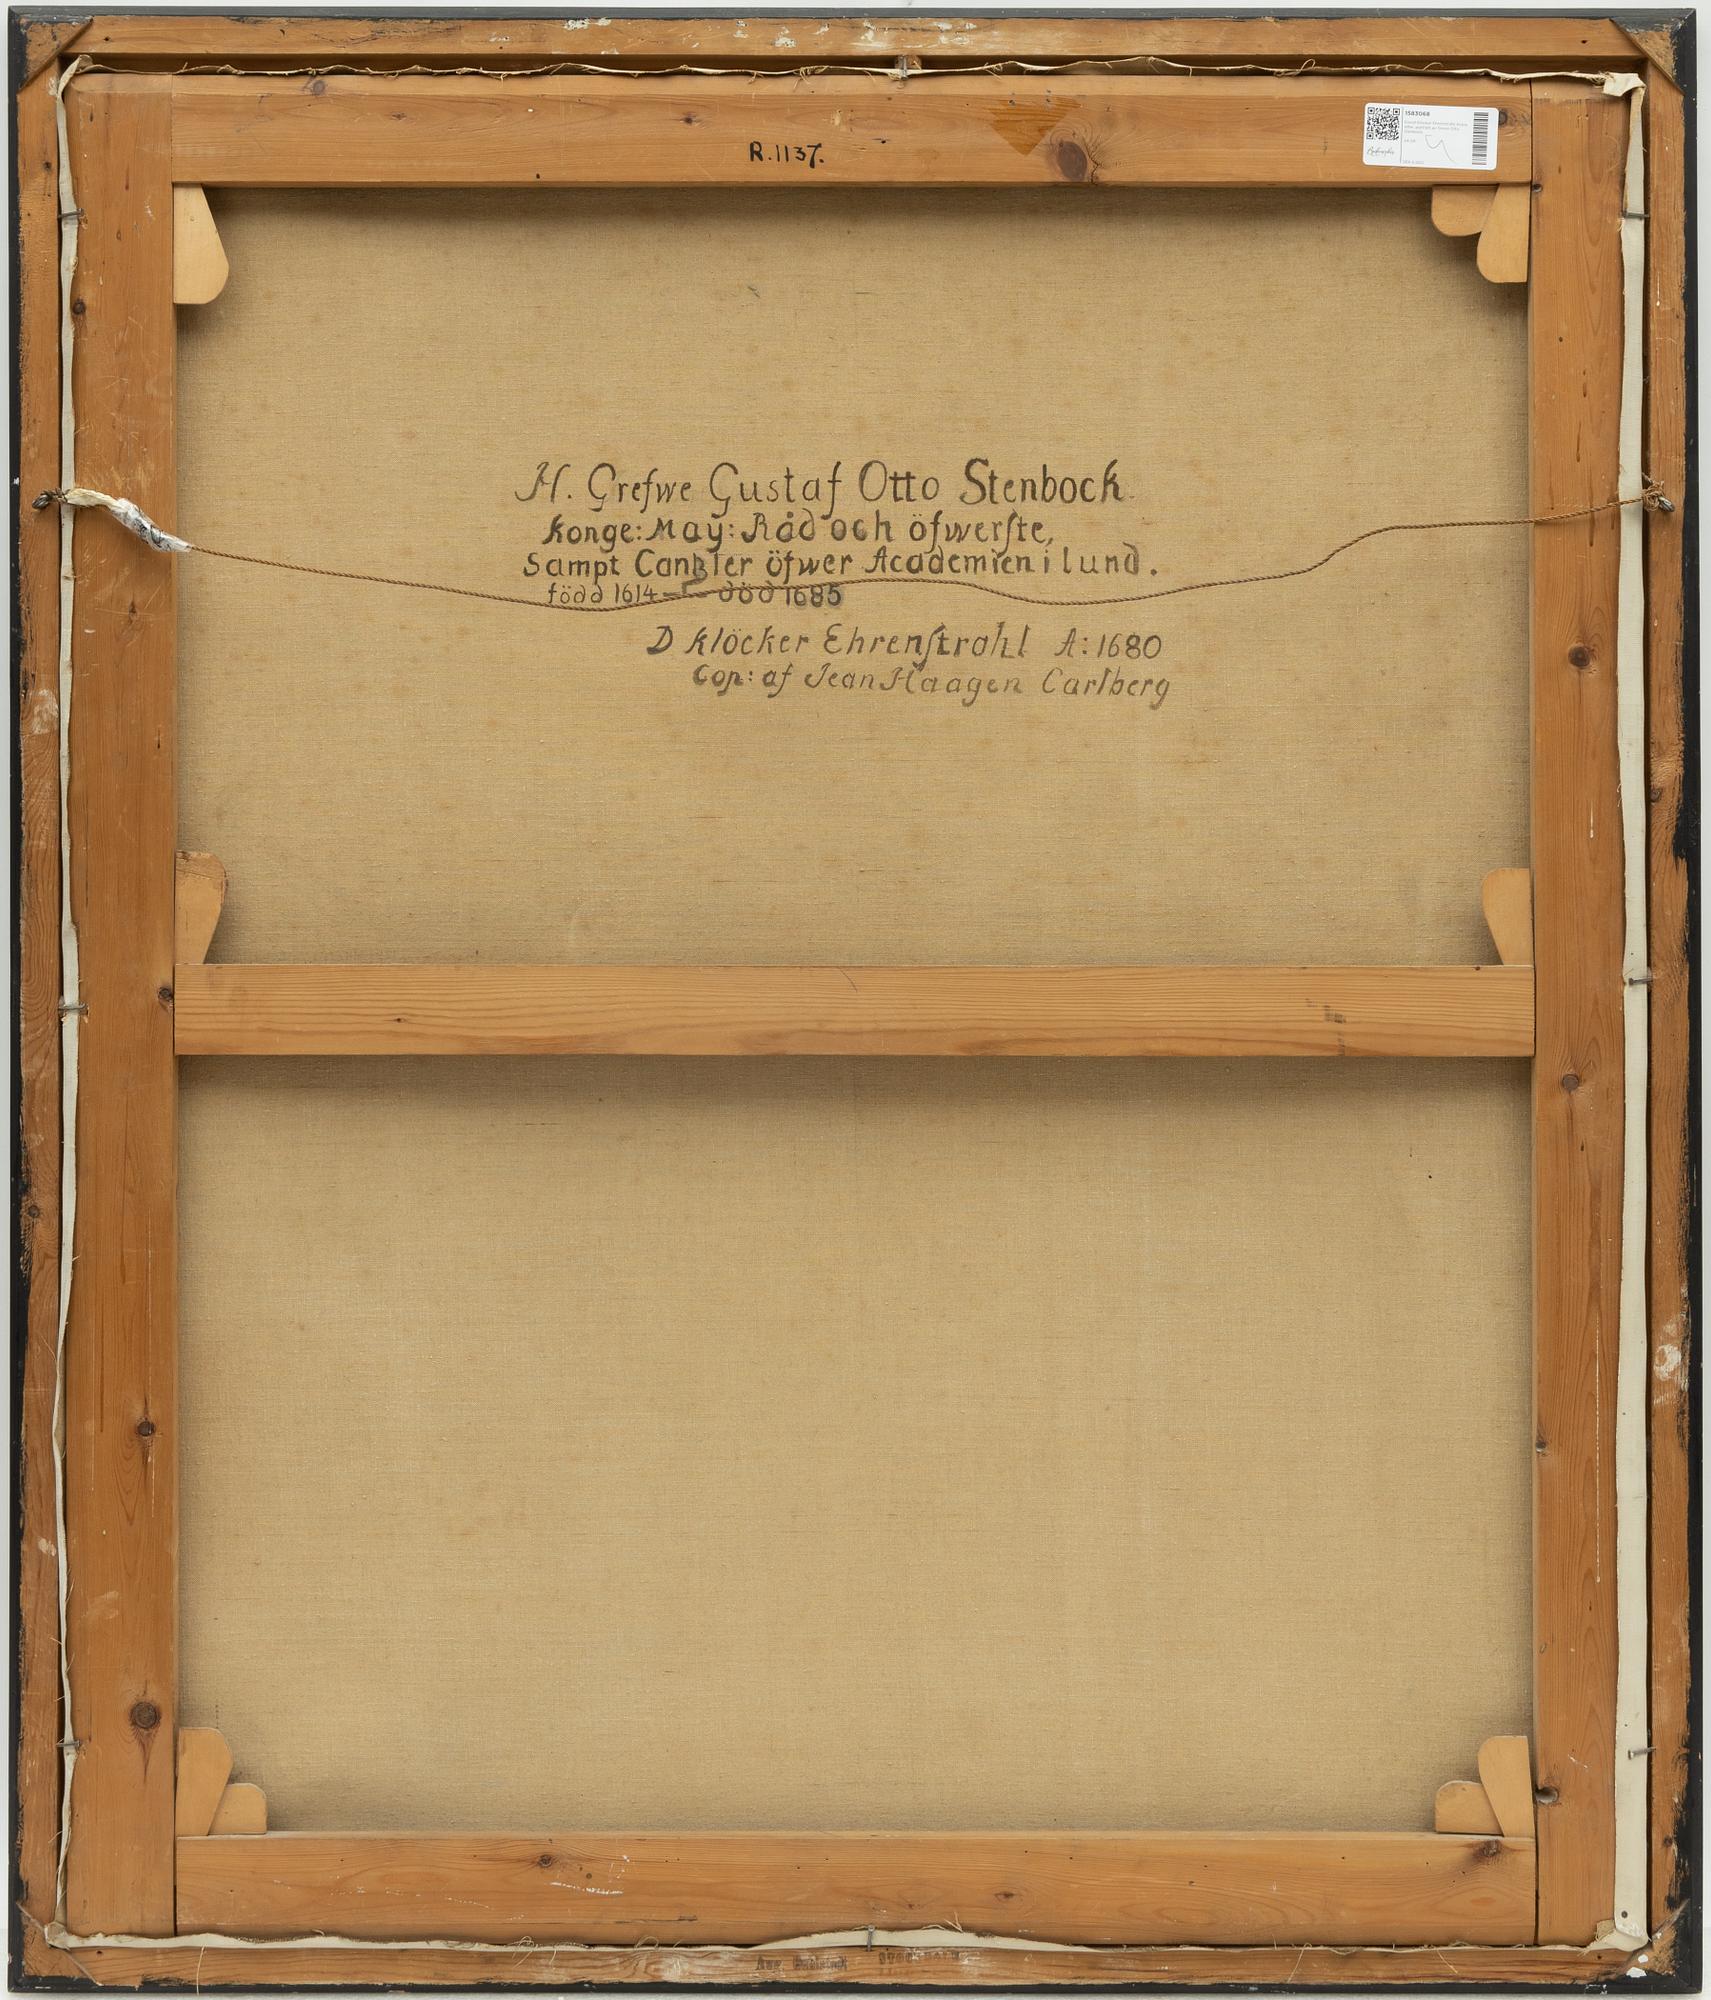 R.1137.
1583068
H. Grefwe Gustaf Otto Stenbock.
Konge: May: Råd och öfwerſte,
Sampt Canßler öfwer Academien i lund.
född 1614 — död 1685
D Klöcker Ehrenſtrahl A: 1680
Cop: af Jean Haagen Carlberg